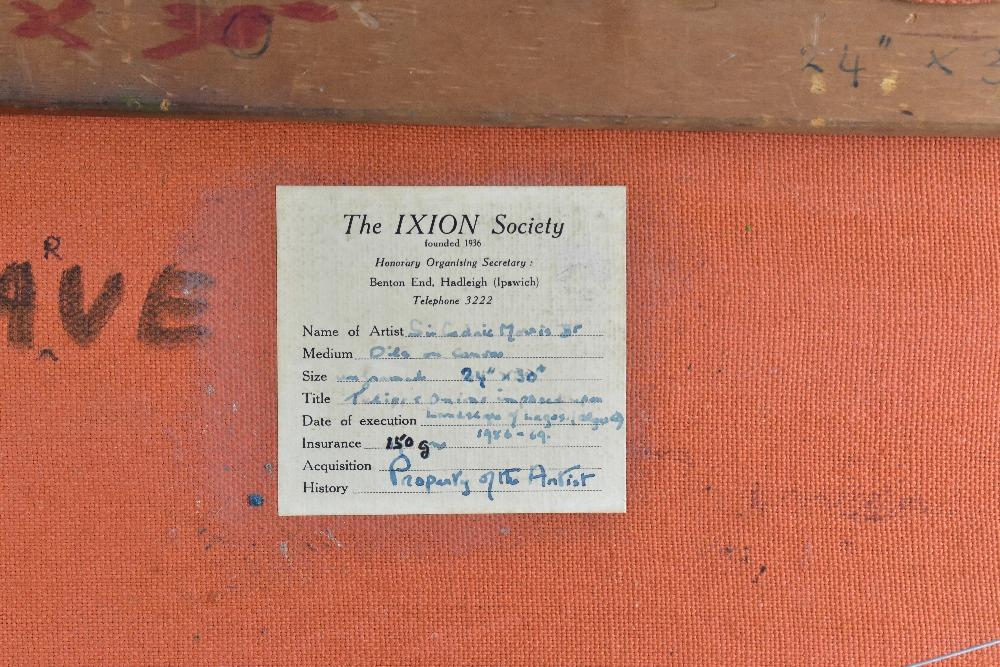 24" x 3
R
AVE
The IXION Society
founded 1936
Honorary Organising Secretary :
Benton End, Hadleigh (Ipswich)
Telephone 3222
Name of Artist Sir Cedric Morris Bt
Medium Oils on Canvas
Size unframed 24" x 30"
Title Tulips & Onions imposed upon
Date of execution Landscape of Lagos,
1966-69.
Insurance 150 gns
Acquisition
History Property of the Artist